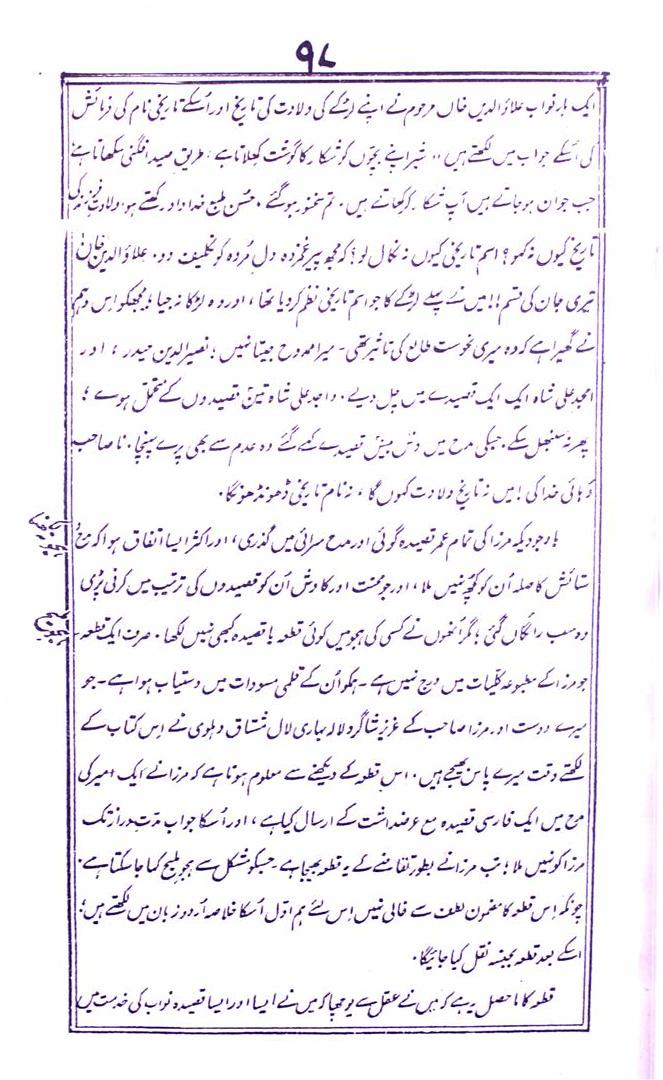 ۹۸
ایک بار نواب علاؤالدین خاں مرحوم نے اپنے لڑکے کی ولادت کی تاریخ اور اُسکے تاریخی نام کی فرمائش
کی اُسکے جواب میں لکھتے ہیں "شیر اپنے بچوں کو شکار کا گوشت کھلاتا ہے، طریق صید افگنی سکھاتا ہے
جب جوان ہو جاتے ہیں آپ شکار کر کھاتے ہیں۔ تم سخنور ہو گئے۔ حُسن طبع خداداد رکھتے ہو، ولادت فرزند کی
تاریخ کیوں نہ کہو؟ اسم تاریخی کیوں نہ نکال لو؟ کہ مجھ پیر غمزدہ دل مُردہ کو تکلیف دو۔ علاؤالدین خان
تیری جان کی قسم!! میں نے پہلے لڑکے کا جو اسم تاریخی نظم کر دیا تھا، اور وہ لڑکا نہ جیا؛ مجھکو اس وہم
نے گھیرا ہے کہ وہ میری نحوست طالع کی تاثیر تھی۔ میرا ممدوح جیتا نہیں؛ نصیرالدین حیدر، اور
امجد علی شاہ ایک ایک قصیدے میں چل دیے۔ واجد علی شاہ تین قصیدوں کے متحمل ہوے؛
پھر نہ سنبھل سکے۔ جسکی مدح میں دس بیس قصیدے کہے گئے وہ عدم سے بھی پرے پہنچا۔ نا صاحب
دُہائی خدا کی! میں نہ تاریخ ولادت کہوں گا، نہ نام تاریخی ڈھونڈھونگا۔
باوجودیکہ مرزا کی تمام عمر قصیدہ گوئی اور مدح سرائی میں گذری، اور اکثر ایسا اتفاق ہوا کہ مدح
ستائش کا صلہ اُن کو کچھ نہیں ملا، اور جو محنت اور کاوش اُن کو قصیدوں کی ترتیب میں کرنی پڑی
وہ سب رائگاں گئی؛ مگر اُنھوں نے کسی کی ہجو میں کوئی قطعہ یا قصیدہ کبھی نہیں لکھا۔ صرف ایک قطعہ
جو مرزا کے مطبوعہ کلیات میں درج نہیں ہے۔ ہمکو اُن کے قلمی مسودات میں دستیاب ہوا ہے۔ جو
میرے دوست اور مرزا صاحب کے عزیز شاگرد لالہ بہاری لال مشتاق دہلوی نے اِس کتاب کے
لکھتے وقت میرے پاس بھیجے ہیں۔ اس قطعہ کے دیکھنے سے معلوم ہوتا ہے کہ مرزا نے ایک امیر کی
مدح میں ایک فارسی قصیدہ مع عرضداشت کے ارسال کیا ہے، اور اُسکا جواب مدّت دراز تک
مرزا کو نہیں ملا؛ تب مرزا نے بطور تقاضے کے یہ قطعہ بھیجا ہے۔ جسکو مشکل سے ہجو ملیح کہا جا سکتا ہے۔
چونکہ اِس قطعہ کا مضمون لطف سے خالی نہیں اِس لئے ہم اوّل اُسکا خلاصہ اُردو زبان میں لکھتے ہیں؛
اسکے بعد قطعہ بجنسہ نقل کیا جائیگا۔
قطعہ کا ماحصل یہ ہے کہ میں نے عقل سے پوچھا کہ میں نے ایسا اور ایسا قصیدہ نواب کی خدمت میں